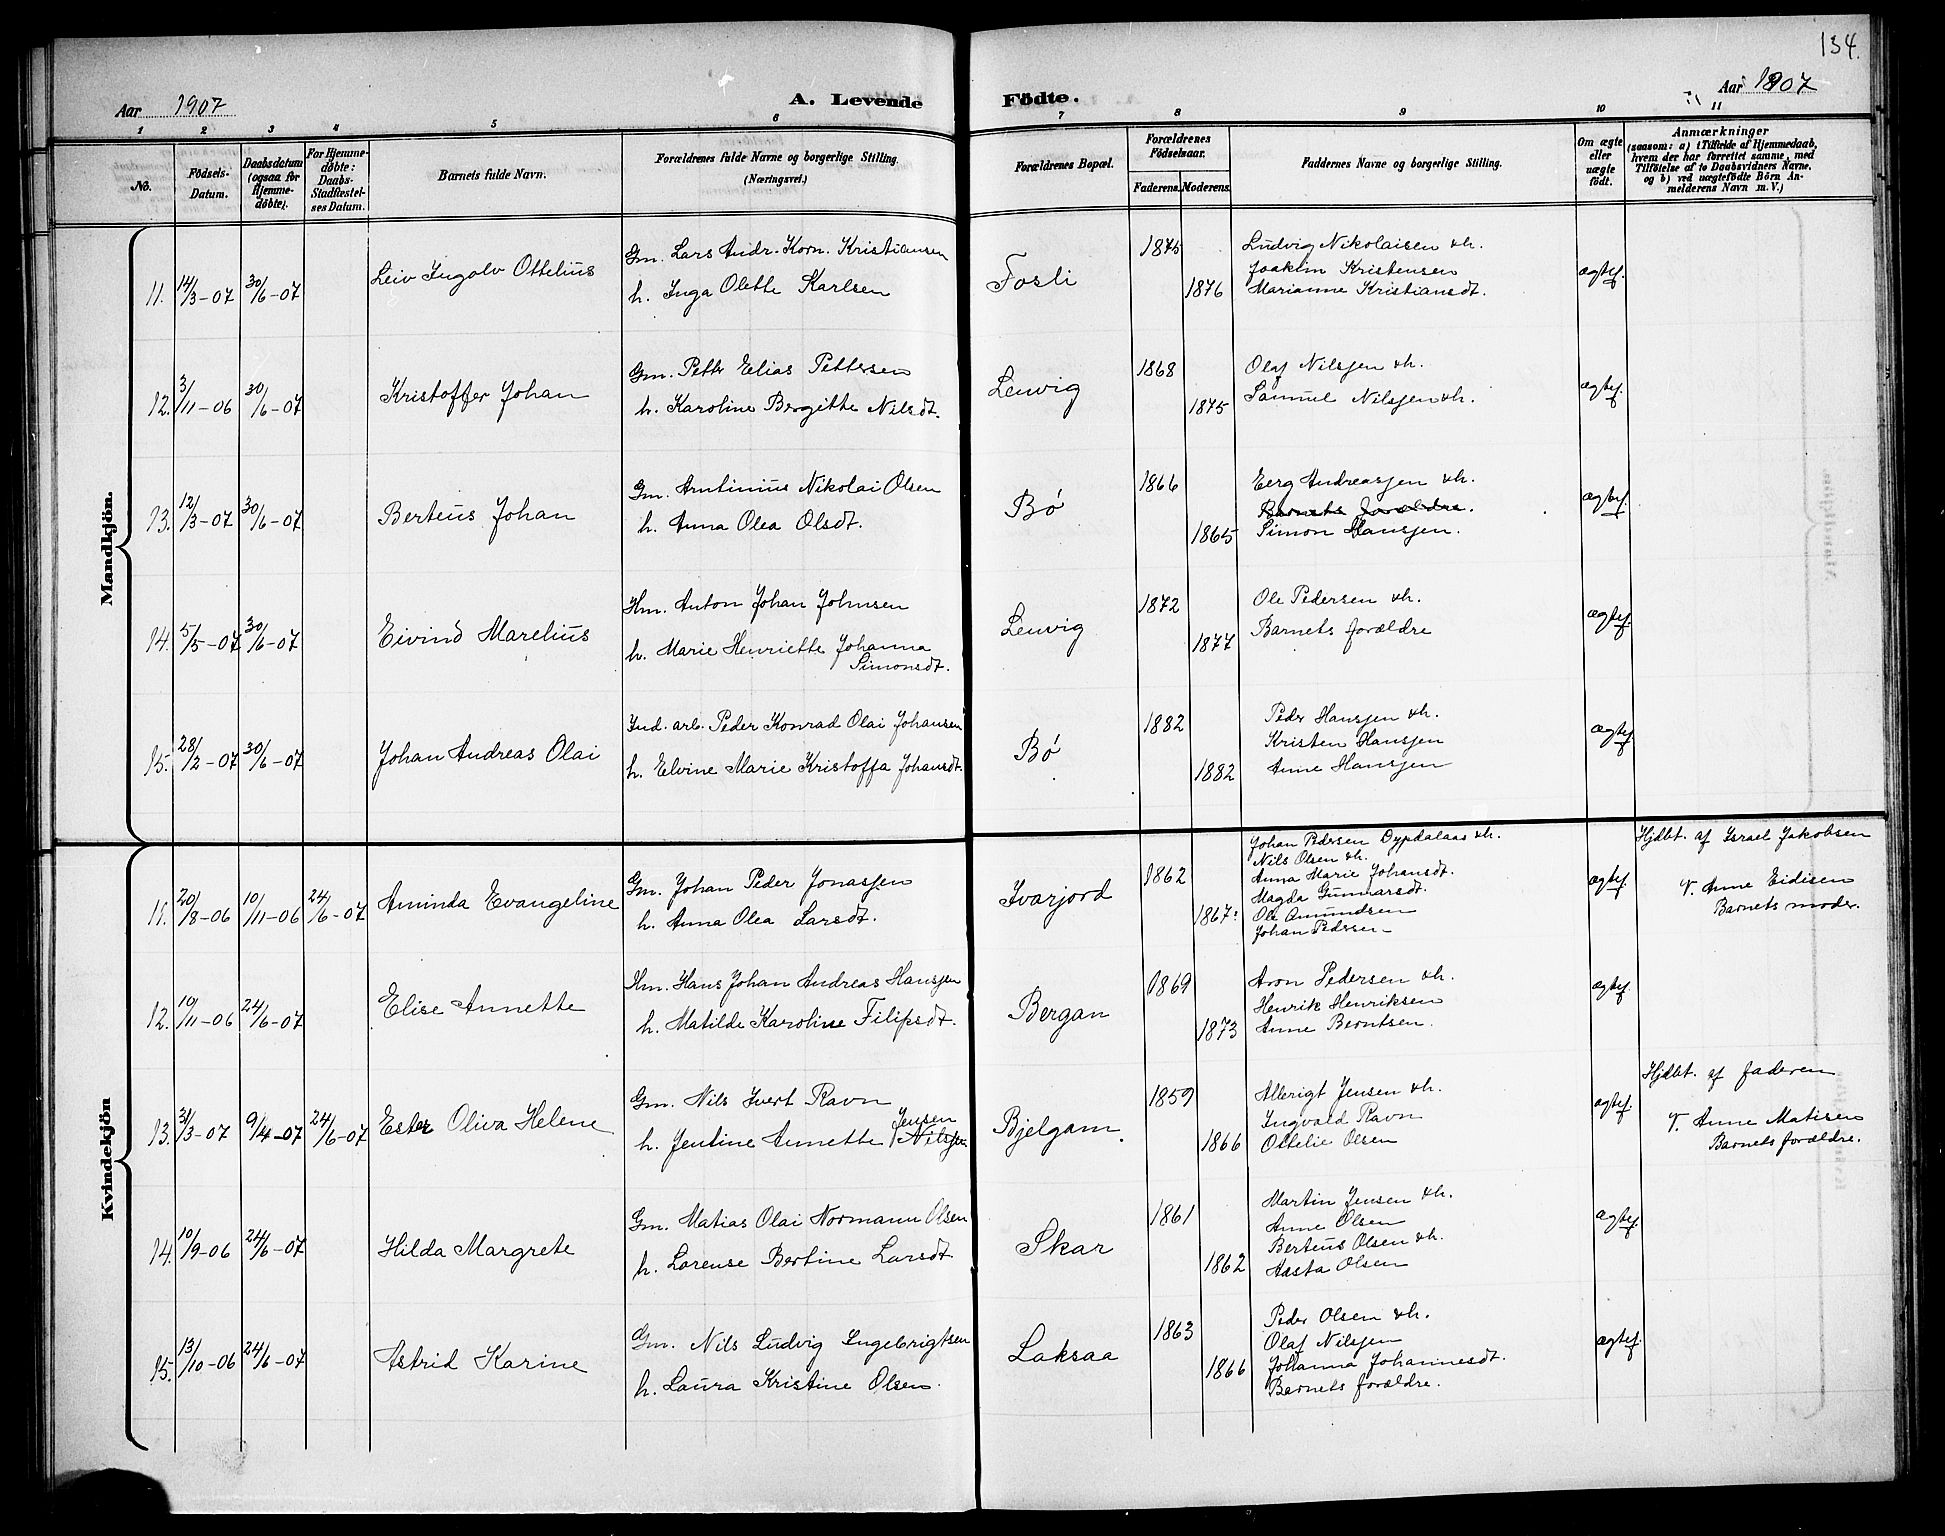 134.
Aar 1907
A. Levende Födte.
Aar 1907
1 2 3 4 5 6 7 8 9 10 11
No.
Födsels-Datum.
Daabsdatum (ogsaa for Hjemme-döbte).
For Hjemme-döbte: Daabs-Stadfæstel-ses Datum.
Barnets fulde Navn.
Forældrenes fulde Navne og borgerlige Stilling.
(Næringsvei.)
Forældrenes Bopæl.
Forældrenes Födselsaar.
Faderens. Moderens.
Faddernes Navne og borgerlige Stilling.
Om ægte eller uægte födt.
Anmærkninger
(saasom: a) i Tilfælde af Hjemmedaab, hvem der har forrettet samme, med Tilföielse af to Daabsvidners Navne, og b) ved uægtefödte Börn An-melderens Navn m. V.)
Mandkjön.
11. 14/3-07 30/6-07 Leiv Ingolv Ottelius
Gm. Lars Andr. Korn. Kristiansen
h. Inga Olette Karlsen
Fosli 1875 1876
Ludvig Nikolaisen &h.
Joakim Kristensen
Marianne Kristiansdt.
ægtef.
12. 3/11-06 30/6-07 Kristoffer Johan
Gm. Petter Elias Pettersen
h. Karoline Bergitte Nilsdt.
Lenvig 1868 1875
Olaf Nilsjen &h.
Samuel Nilsjen &h.
ægtef.
13. 12/3-07 30/6-07 Berteus Johan
Gm. Arntinius Nikolai Olsen
h. Anna Olea Olsdt.
Bø 1866 1865
Eerg Andreasjen &h.
Barnets forældre.
Simon Hansjen.
ægtef.
14. 5/5-07 30/6-07 Eivind Marelius
Hm. Anton Johan Johnsen
h. Marie Henriette Johanna
Simonsdt.
Lenvig 1872 1877
Ole Pedersen &h.
Barnets forældre
ægtef.
15. 28/2-07 30/6-07 Johan Andreas Olai
Ind. arb. Peder Konrad Olai Johansen
h. Elvine Marie Kristoffa Johansdt.
Bø 1882 1882
Peder Hansjen &h.
Kristen Hansjen
Anne Hansjen
ægtef.
Kvindekjön
11. 20/8-06 10/11-06 24/6-07 Aminda Evangeline
Gm. Johan Peder Jonasjen
h. Anna Olea Larsdt.
Ivarjord 1862 1867
Johan Pedersen Dypdalaas &h.
Nils Olsen &h.
Anna Marie Johansdt.
Magda Gunnarsdt.
Ole Amundsen
Johan Pedersen
ægtef.
Hjdbt. af Israel Jakobsen
V. Anne Eidisen
Barnets moder.
12. 10/11-06 24/6-07 Elise Annette
Hm. Hans Johan Andreas Hansjen
h. Matilde Karoline Filipsdt.
Bergan 1869 1873
Aron Pedersen &h.
Henrik Henriksen
Anne Berntsen.
ægtef.
13. 31/3-07 9/4-07 24/6-07 Ester Oliva Helene
Gm. Nils Ivert Ravn
Jensen
h. Jentine Annette Nilsjen
Bjelgam. 1859 1866
Allerigt Jensen &h.
Ingvald Ravn
Ottelie Olsen
ægtef.
Hjdbt. af faderen
V. Anne Matisen
Barnets forældre.
14. 10/9-06 24/6-07 Hilda Margrete
Gm. Matias Olai Normann Olsen
h. Lorense Bertine Larsdt.
Skar 1861 1862
Martin Jensen &h.
Anne Olsen
Berteus Olsen &h.
Aasta Olsen
ægtef.
15. 13/10-06 24/6-07 Astrid Karine
Gm. Nils Ludvig Ingebrigtsen
h. Laura Kristine Olsen.
Laksaa 1863 1866
Peder Olsen &h.
Olaf Nilsjen
Johanna Johannesdt.
Barnets forældre.
ægtef.